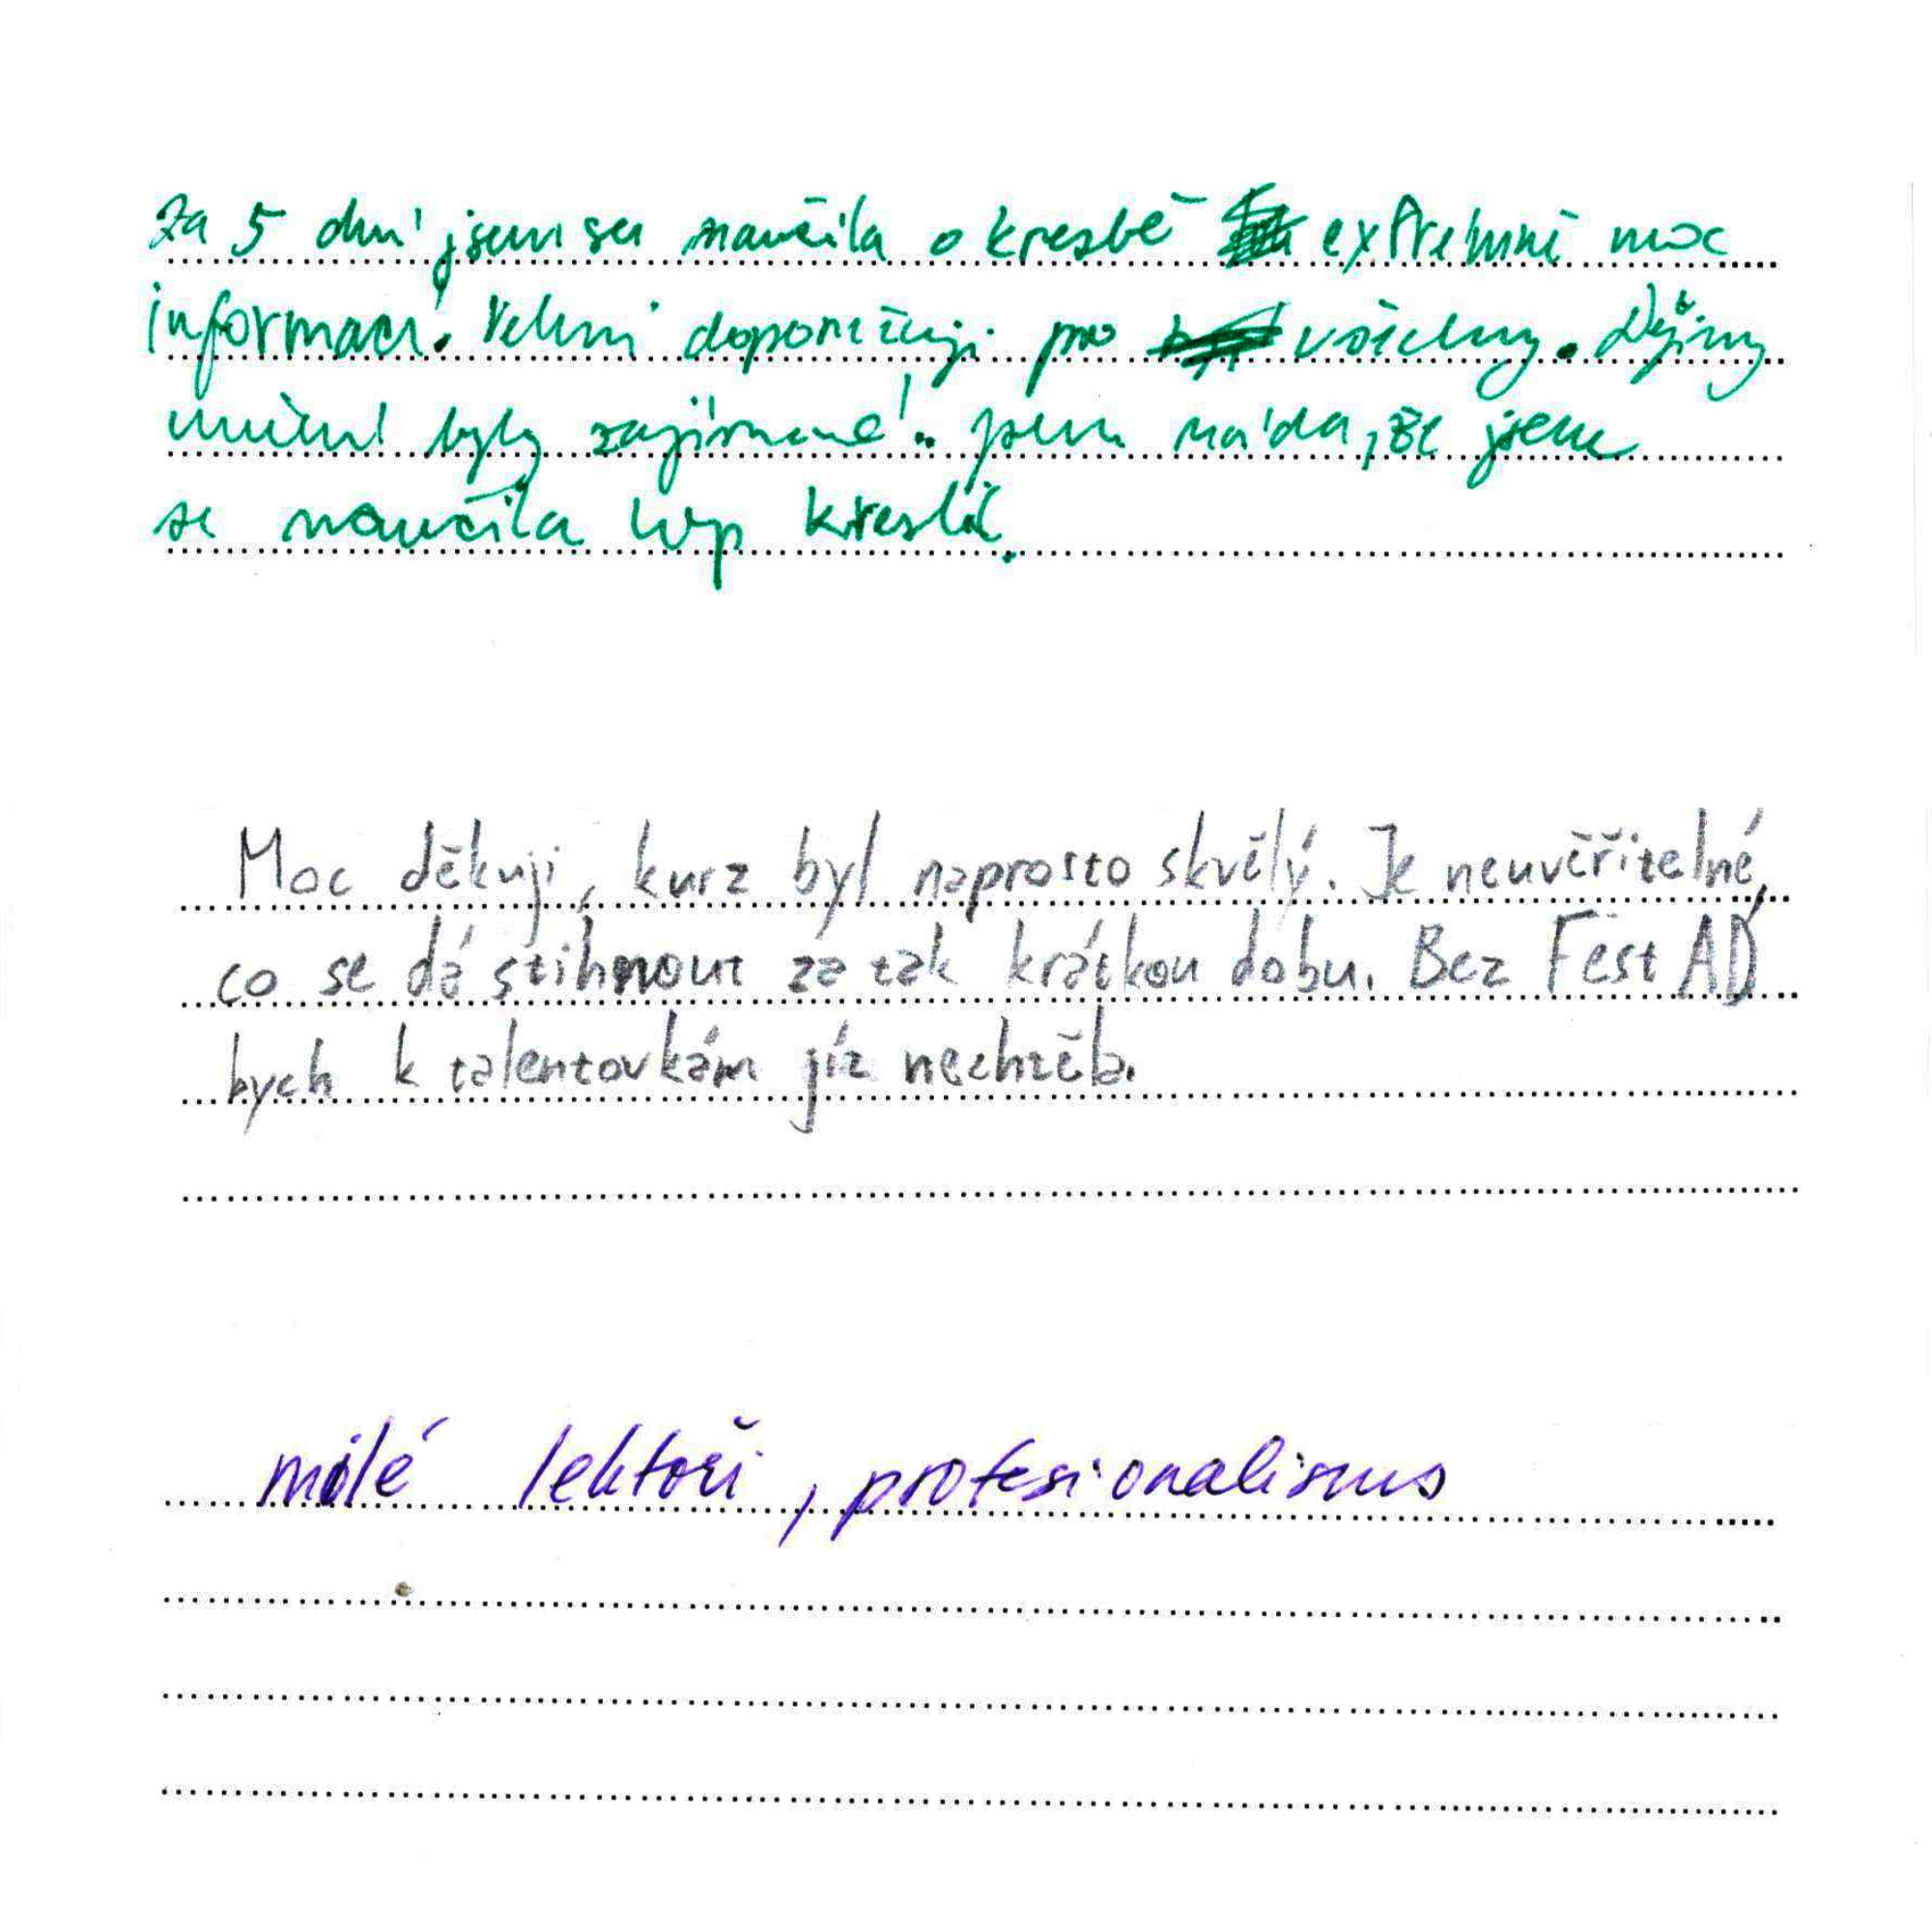 Za 5 dní jsem se naučila o kresbě extrémně moc
informací. Velmi doporučuji pro všechny. Dějiny
umění byly zajímavé! Jsem ráda, že jsem
se naučila líp kreslit.
Moc děkuji, kurz byl naprosto skvělý. Je neuvěřitelné,
co se dá stihnout za tak krátkou dobu. Bez Fest AD
bych k talentovkám jít nechtěla.
milé lektoři, profesionalismus